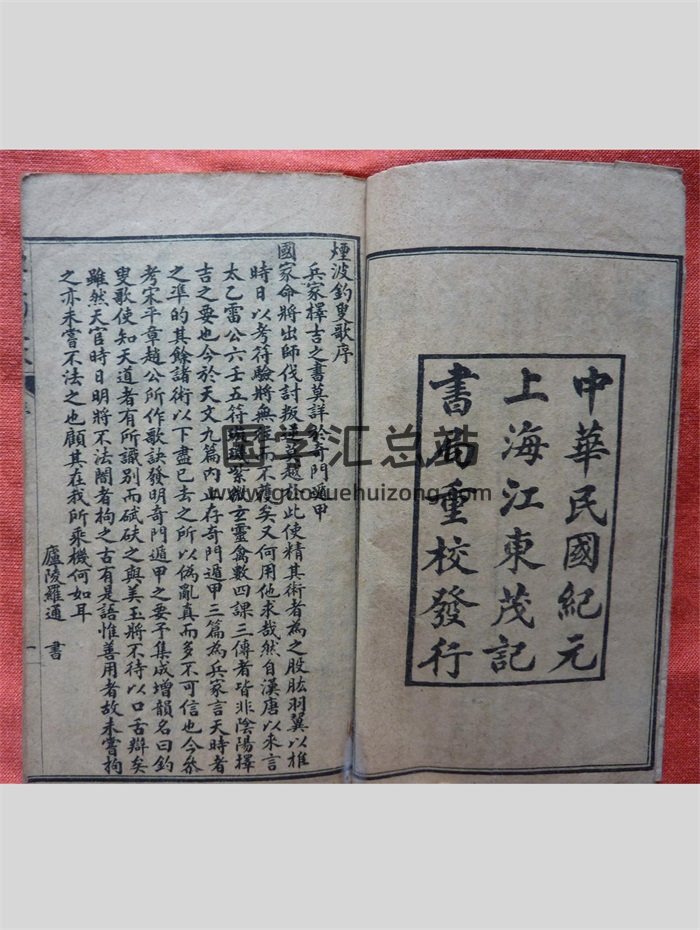 中華民國紀元
上海江東茂記
書局重校發行
煙波釣叟歌序
兵家擇吉之書莫詳於奇門遁甲
國家命將出師伐討叛逆莫越此使精其術者為之股肱羽翼以推
時日以考符驗將無往而不獲矣又何用他求哉然自漢唐以來言
太乙雷公六壬五符紫微玄靈禽數四課三傳者皆非陰陽擇
吉之要也今於天文九篇內止存奇門遁甲三篇為兵家言天時者
之準的其餘諸術以下盡已去之所以偽亂真而多不可信也今叅
考宋平章趙公所作歌訣發明奇門遁甲之要予集成增韻名曰釣
叟歌使知天道者有所識別而碔砆之與美玉將不待以口舌辯矣
雖然天官時日明將不法闇者拘之古有是語惟善用者故未嘗拘
之亦未嘗不法之也顧其在我所乘機何如耳
廬陵羅通 書
一
国学汇总站
www.guoxuehuizong.com